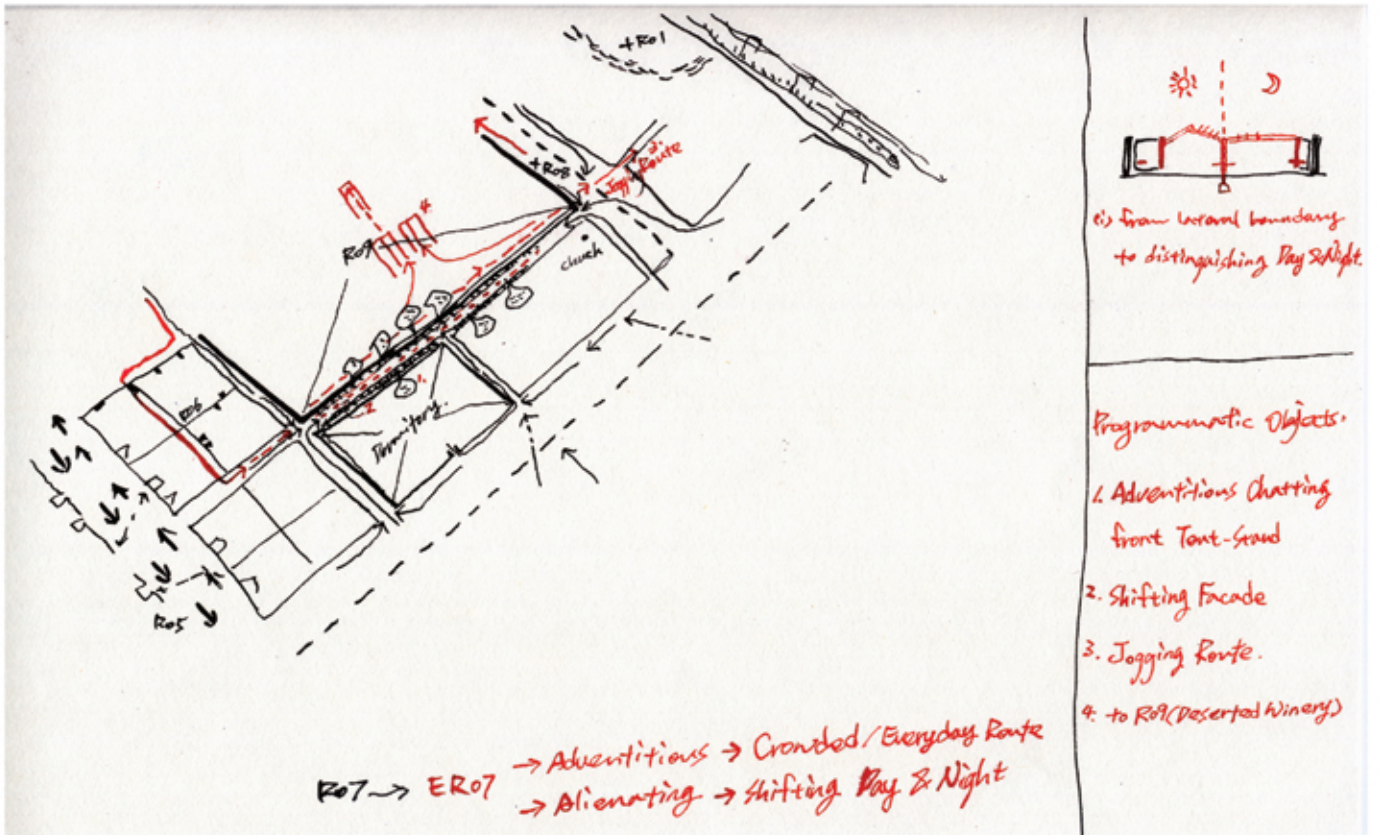 +R01
+R08
3.
Jogging Route
R09
4.
chuch
1.
2
Dormitory.
R06
R05
R07 → ER07
→ Adventitious → Crowded/Everyday Route
→ Alienating → Shifting Day & Night
from lateral boundary
to distinguishing Day & Night.
Programmatic Objects.
1. Adventitious Chatting
front Tent-Stand
2. Shifting Facade
3. Jogging Route.
4. to R09 (Deserted Winery)